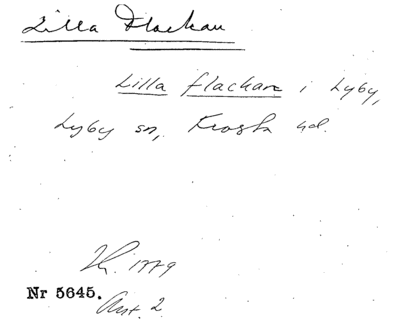 Lilla Flackan
Lilla flackan i Lyby,
Lyby sn, Frosta hd.
1779
Nr 5645.
Ant. 2